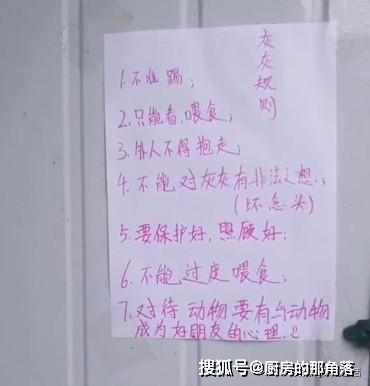 灰灰规则
1.不准踢;
2.只能看,喂食;
3.外人不得抱走;
4.不能对灰灰有非法之想.;
(坏念头)
5.要保护好,照顾好;
6.不能过度喂食;
7.对待动物要有与动物
成为好朋友的心理.
搜狐号@厨房的那角落